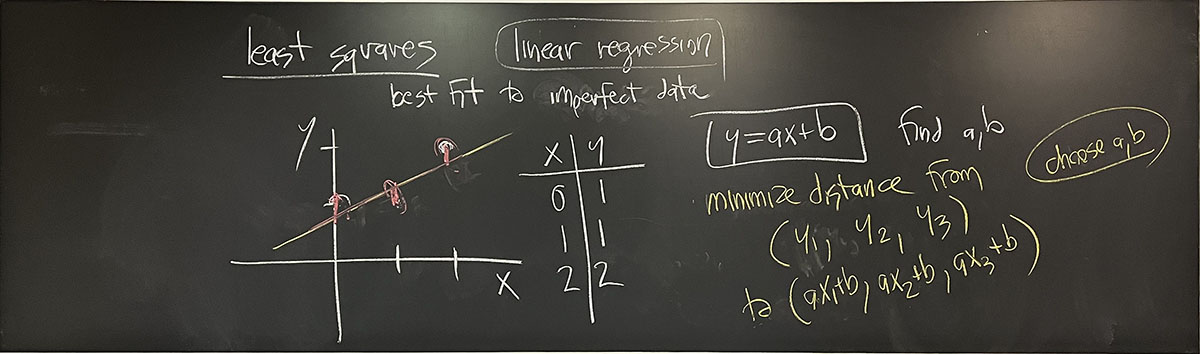 least squares
linear regression
best fit to imperfect data
y
x
x y
0 1
1 1
2 2
y=ax+b find a,b
choose a,b
minimize distance from
(y₁, y₂, y₃)
to (ax₁+b, ax₂+b, ax₃+b)